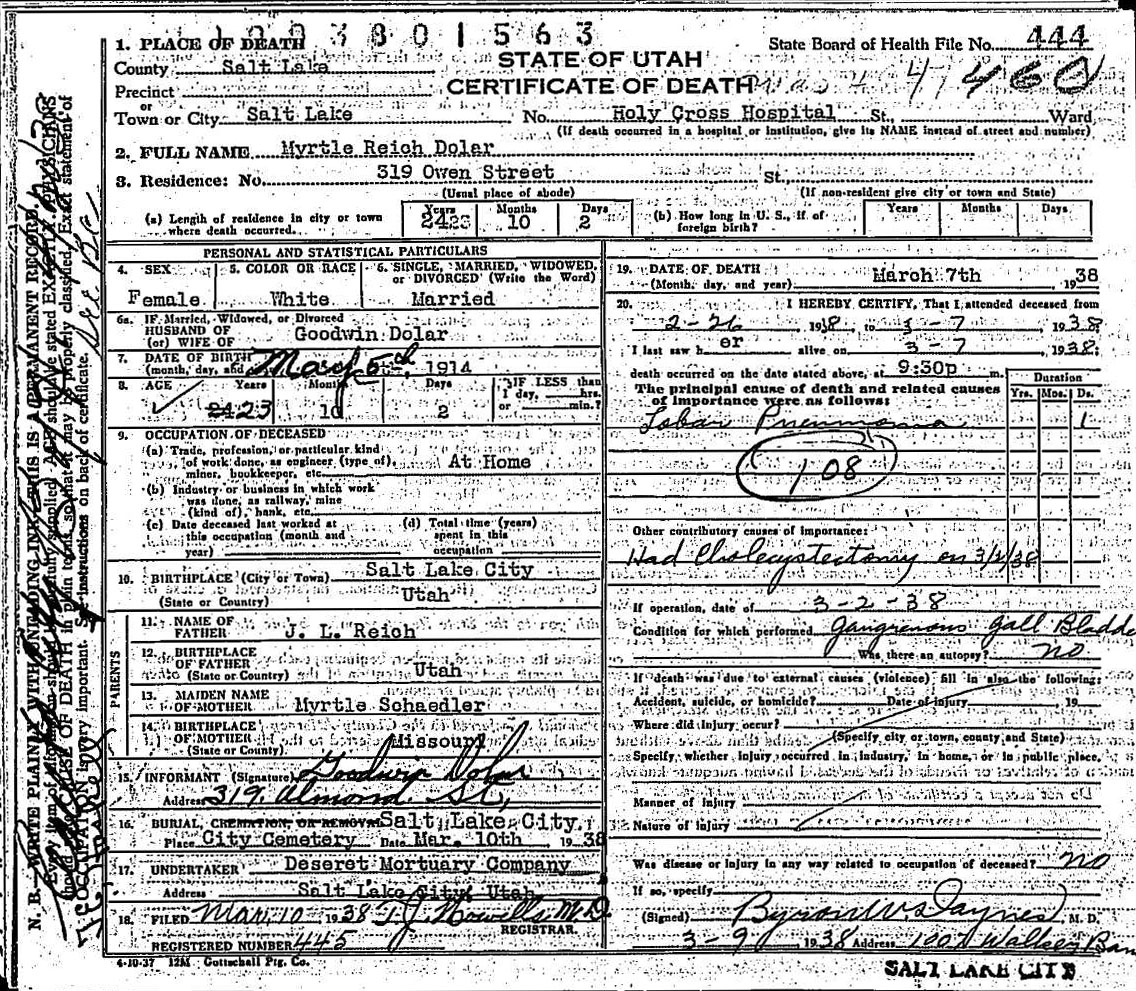 1003801563
1. PLACE OF DEATH
State Board of Health File No. 444
County Salt Lake
STATE OF UTAH
Precinct
CERTIFICATE OF DEATH
460
or
Town or City Salt Lake No. Holy Cross Hospital St., Ward
(If death occurred in a hospital or institution, give its NAME instead of street and number)
2. FULL NAME Myrtle Reich Dolar
3. Residence: No. 319 Owen Street St.
(Usual place of abode) (If non-resident give city or town and State)
(a) Length of residence in city or town where death occurred. Years 2423 Months 10 Days 2
(b) How long in U. S., if of foreign birth? Years Months Days
PERSONAL AND STATISTICAL PARTICULARS
4. SEX 5. COLOR OR RACE 6. SINGLE, MARRIED, WIDOWED, or DIVORCED (Write the Word)
Female White Married
6a. IF Married, Widowed, or Divorced
HUSBAND OF
(or) WIFE OF Goodwin Dolar
7. DATE OF BIRTH
(month, day, and May 5th 1914
8. AGE Years Months Days IF LESS than
1 day, hrs.
or min.?
24 23 10 2
9. OCCUPATION OF DECEASED
(a) Trade, profession, or particular kind
of work done, as engineer (type of), At Home
miner, bookkeeper, etc.
(b) Industry or business in which work
was done, as railway, mine
(kind of), bank, etc.
(c) Date deceased last worked at (d) Total time (years)
this occupation (month and spent in this
year) occupation
10. BIRTHPLACE (City or Town) Salt Lake City
(State or Country) Utah
PARENTS
11. NAME OF
FATHER J. L. Reich
12. BIRTHPLACE
OF FATHER
(State or Country) Utah
13. MAIDEN NAME
OF MOTHER Myrtle Schaedler
14. BIRTHPLACE
OF MOTHER
(State or Country) Missouri
15. INFORMANT (Signature) Goodwin Dolar
Address 319 Almond St,
16. BURIAL, CREMATION, OR REMOVAL Salt Lake City,
Place City Cemetery Date Mar. 10th, 1938
17. UNDERTAKER Deseret Mortuary Company
Address Salt Lake City, Utah
18. FILED Mar. 10 1938 T. J. Howells M.D.
REGISTRAR.
REGISTERED NUMBER 445
4-10-37 12M Gottschall Ptg. Co.
19. DATE OF DEATH March 7th 1938
(Month, day, and year)
20. I HEREBY CERTIFY, That I attended deceased from
2-26 1938, to 3-7 1938
I last saw her alive on 3-7, 1938;
death occurred on the date stated above, at 9:50p m.
The principal cause of death and related causes
of importance were as follows:
Duration
Yrs. Mos. Ds.
Lobar Pneumonia 1
108
Other contributory causes of importance:
Had Cholecystectomy on 3/2/38
If operation, date of 3-2-38
Condition for which performed Gangrenous Gall Bladde
Was there an autopsy? no
If death was due to external causes (violence) fill in also the following:
Accident, suicide, or homicide? Date of injury 19
Where did injury occur?
(Specify city or town, county, and State)
Specify, whether injury occurred in industry, in home, or in public place,
Manner of injury
Nature of injury
Was disease or injury in any way related to occupation of deceased? no
If so, specify
(Signed) Byron W. Daynes, M. D.
3-9 1938 Address
SALT LAKE CITY
N. B. WRITE PLAINLY WITH UNFADING INK THIS IS A PERMANENT RECORD